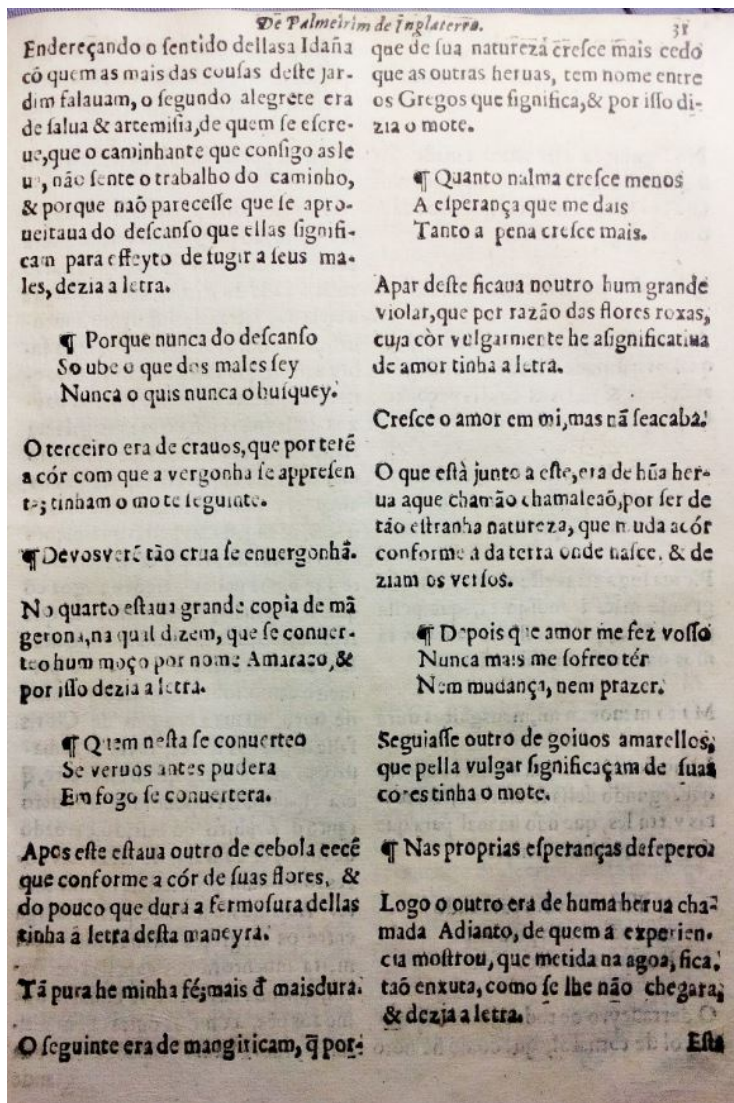 De Palmeirim de Inglaterra. 38
Endereçando o ſentido dellasa Idaña
cõ quem as mais das couſas deſte jar-
dim falauam, o ſegundo alegrete era
de ſalua & artemiſia, de quem ſe eſcre-
ue, que o caminhante que conſigo as le
ua, não ſente o trabalho do caminho,
& porque naõ pareceſſe que ſe apro-
ueitaua do deſcanſo que ellas ſignifi-
cam para effeyto de fugir a ſeus ma-
les, dezia a letra.
¶ Porque nunca do deſcanſo
Soube o que dos males ſey
Nunca o quis nunca o buſquey.
O terceiro era de crauos, que por terẽ
a cór com que a vergonha ſe appreſen
ta; tinham o mote ſeguinte.
¶ De vos verẽ tão crua ſe enuergonhã.
No quarto eſtaua grande copia de mã
gerona, na qual dizem, que ſe conuer-
teo hum moço por nome Amaraco, &
por iſſo dezia a letra.
¶ Quem neſta ſe conuerteo
Se veruos antes pudera
Em fogo ſe conuertera.
Apos eſte eſtaua outro de cebola cecẽ
que conforme a cór de ſuas flores, &
do pouco que dura a fermoſura dellas
tinha a letra deſta maneyra.
Tã pura he minha fé; mais đ mais dura.
O ſeguinte era de mangiricam, q̃ por-
que de ſua natureza creſce mais cedo
que as outras heruas, tem nome entre
os Gregos que ſignifica, & por iſſo di-
zia o mote.
¶ Quanto nalma creſce menos
A eſperança que me dais
Tanto a pena creſce mais.
Apar deſte ficaua noutro hum grande
violar, que por razão das flores roxas,
cuja còr vulgarmente he aſignificatiua
de amor tinha a letra.
Creſce o amor em mi, mas nã ſe acaba.
O que eſtà junto a eſte, era de hũa her-
ua a que chamão chamaleaõ, por ſer de
tão eſtranha natureza, que muda a cór
conforme a da terra onde naſce. & de
ziam os verſos.
¶ Depois que amor me fez voſſo
Nunca mais me ſofreo tér
Nem mudança, nem prazer.
Seguiaſſe outro de goiuos amarellos,
que pella vulgar ſignificaçam de ſuas
cores tinha o mote.
¶ Nas proprias eſperanças deſeſpero
Logo o outro era de huma herua cha-
mada Adianto, de quem a experien-
cia moſtrou, que metida na agoa, fica,
taõ enxuta, como ſe lhe não chegara,
& dezia a letra.
Eſta